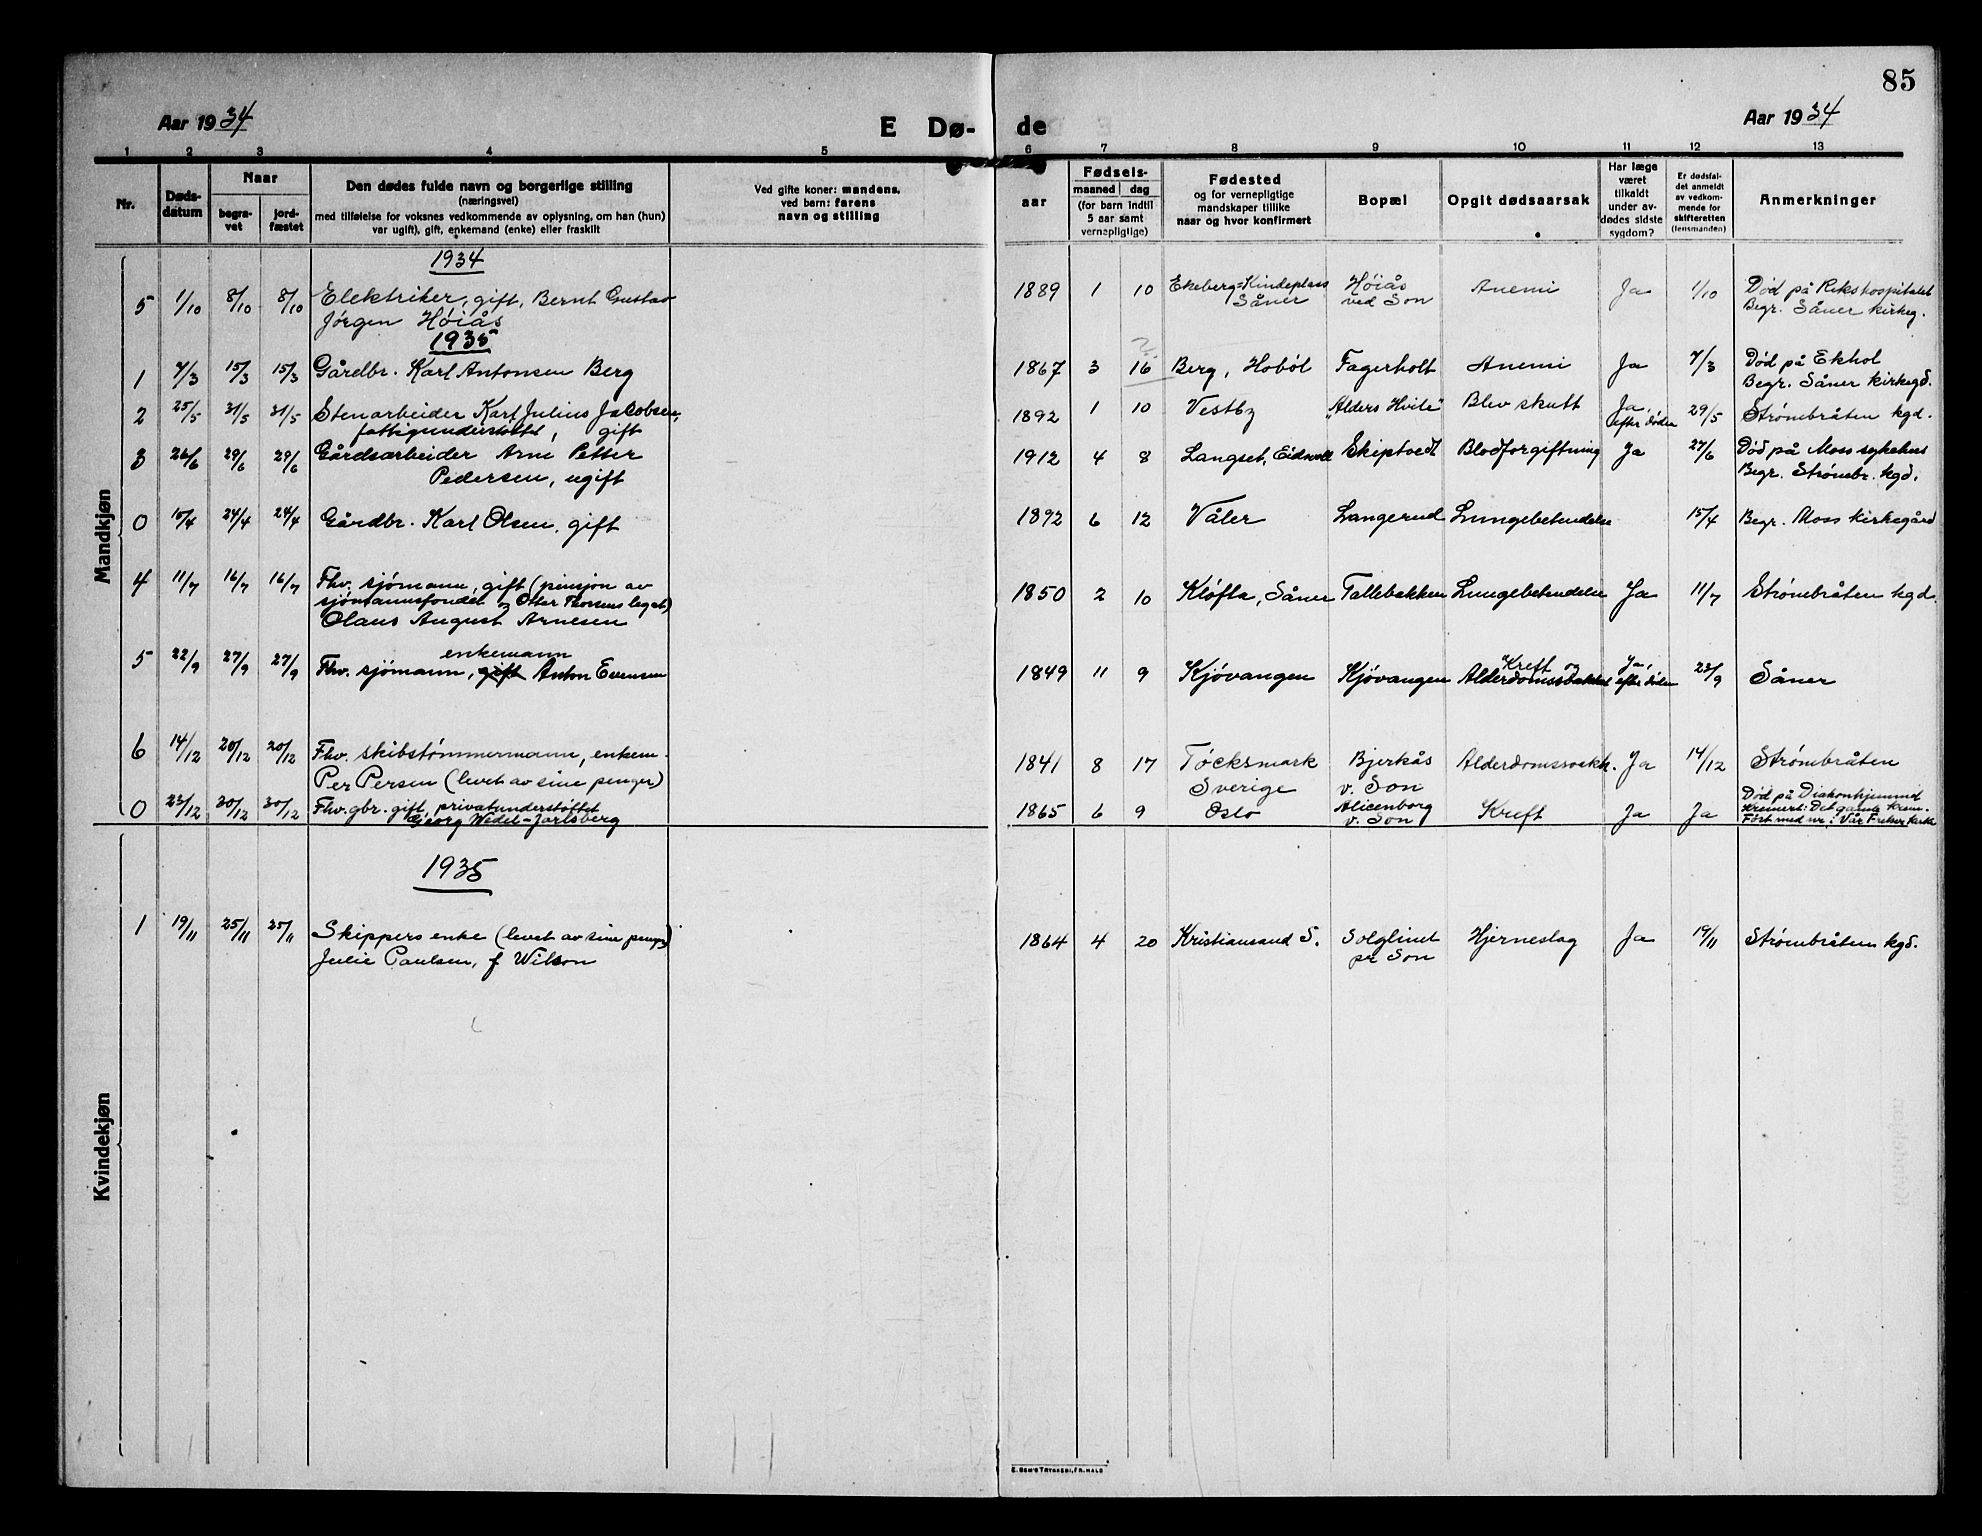 85
Aar 1934
E Dø-
de
Aar 1934
1 2 3 4 5 6 7 8 9 10 11 12 13
Nr.
Døds-
datum
Naar
begra-
vet
jord-
fæstet
Den dødes fulde navn og borgerlige stilling
(næringsvei)
med tilføielse for voksnes vedkommende av oplysning, om han (hun)
var ugift), gift, enkemand (enke) eller fraskilt
Ved gifte koner: mandens,
ved barn: farens
navn og stilling
Fødsels-
aar
maaned dag
(for barn indtil
5 aar samt
vernepligtige)
Fødested
og for vernepligtige
mandskaper tillike
naar og hvor konfirmert
Bopæl
Opgit dødsaarsak
Har læge
været
tilkaldt
under av-
dødes sidste
sygdom?
Er dødsfal-
det anmeldt
av vedkom-
mende for
skifteretten
(lensmanden)
Anmerkninger
Mandkjøn
1934
5 1/10 8/10 8/10 Elektriker, gift, Bernt Gustav
Jörgen Höiås
1889 1 10 Ekeberg=Kindeplass
Såner
Höiås
ved Son
Anemi Ja 1/10 Död på Rikshospitalet
Begr. Såner kirkeg.
1935
1 7/3 15/3 15/3 Gårdbr. Karl Antonsen Berg
1867 3 16 ? Berg, Hoböl Fagerholt Anemi Ja 7/3 Död på Ekhol
Begr. Såner kirkegd.
2 25/5 31/5 31/5 Stenarbeider Karl Julius Jacobsen,
fattigunderstöttet, gift
1892 1 10 Vestby "Alders Hvile" Blev skutt Ja,
efter döden
29/5 Strömbråten kgd.
3 26/6 29/6 29/6 Gårdsarbeider Arne Petter
Pedersen, ugift
1912 4 8 Langset, Eidsvoll Skiptvedt Blodforgiftning Ja 27/6 Död på Moss sykehus
Begr. Strömbr. kgd.
0 15/4 24/4 24/4 Gårdbr. Karl Olsen, gift
1892 6 12 Våler Langerud Lungebetendelse 15/4 Begr. Moss kirkegård
4 11/7 16/7 16/7 Fhv. sjömann, gift (pensjon av
sjömannsfondet og Otter Thoresens legat)
Olaus August Arnesen
1850 2 10 Klöfta, Såner Tallebakken Lungebetendelse Ja 11/7 Strömbråten kgd.
5 22/9 27/9 27/9 enkemann
Fhv. sjömann, gift Anton Evensen
1849 11 9 Kjövangen Kjövangen Kreft og
Alderdomssvakhet
Ja,
efter döden
23/9 Såner
6 14/12 20/12 20/12 Fhv. skibstömmermann, enkem.
Per Persen (levet av sine penger)
1841 8 17 Töcksmark
Sverige
Bjerkås
v. Son
Alderdomssvakh. Ja 14/12 Strömbråten
0 23/12 30/12 30/12 Fhv. gbr. gift, privatunderstöttet
Georg Wedel-Jarlsberg
1865 6 9 Oslo Alicenborg
v. Son
Kreft Ja Ja Död på Diakonhjemmet
Kremert: Det gamle krem.
Fört med nr. i Vår Frelser kirke
Kvindekjøn
1935
1 19/11 25/11 25/11 Skippers enke (levet av sine penger)
Julie Paulsen, f Wilson
1864 4 20 Kristiansand S. Solglint
pr Son
Hjerneslag Ja 19/11 Strömbråten kgd.
E. SEM'S TRYKKERI, FR.HALD